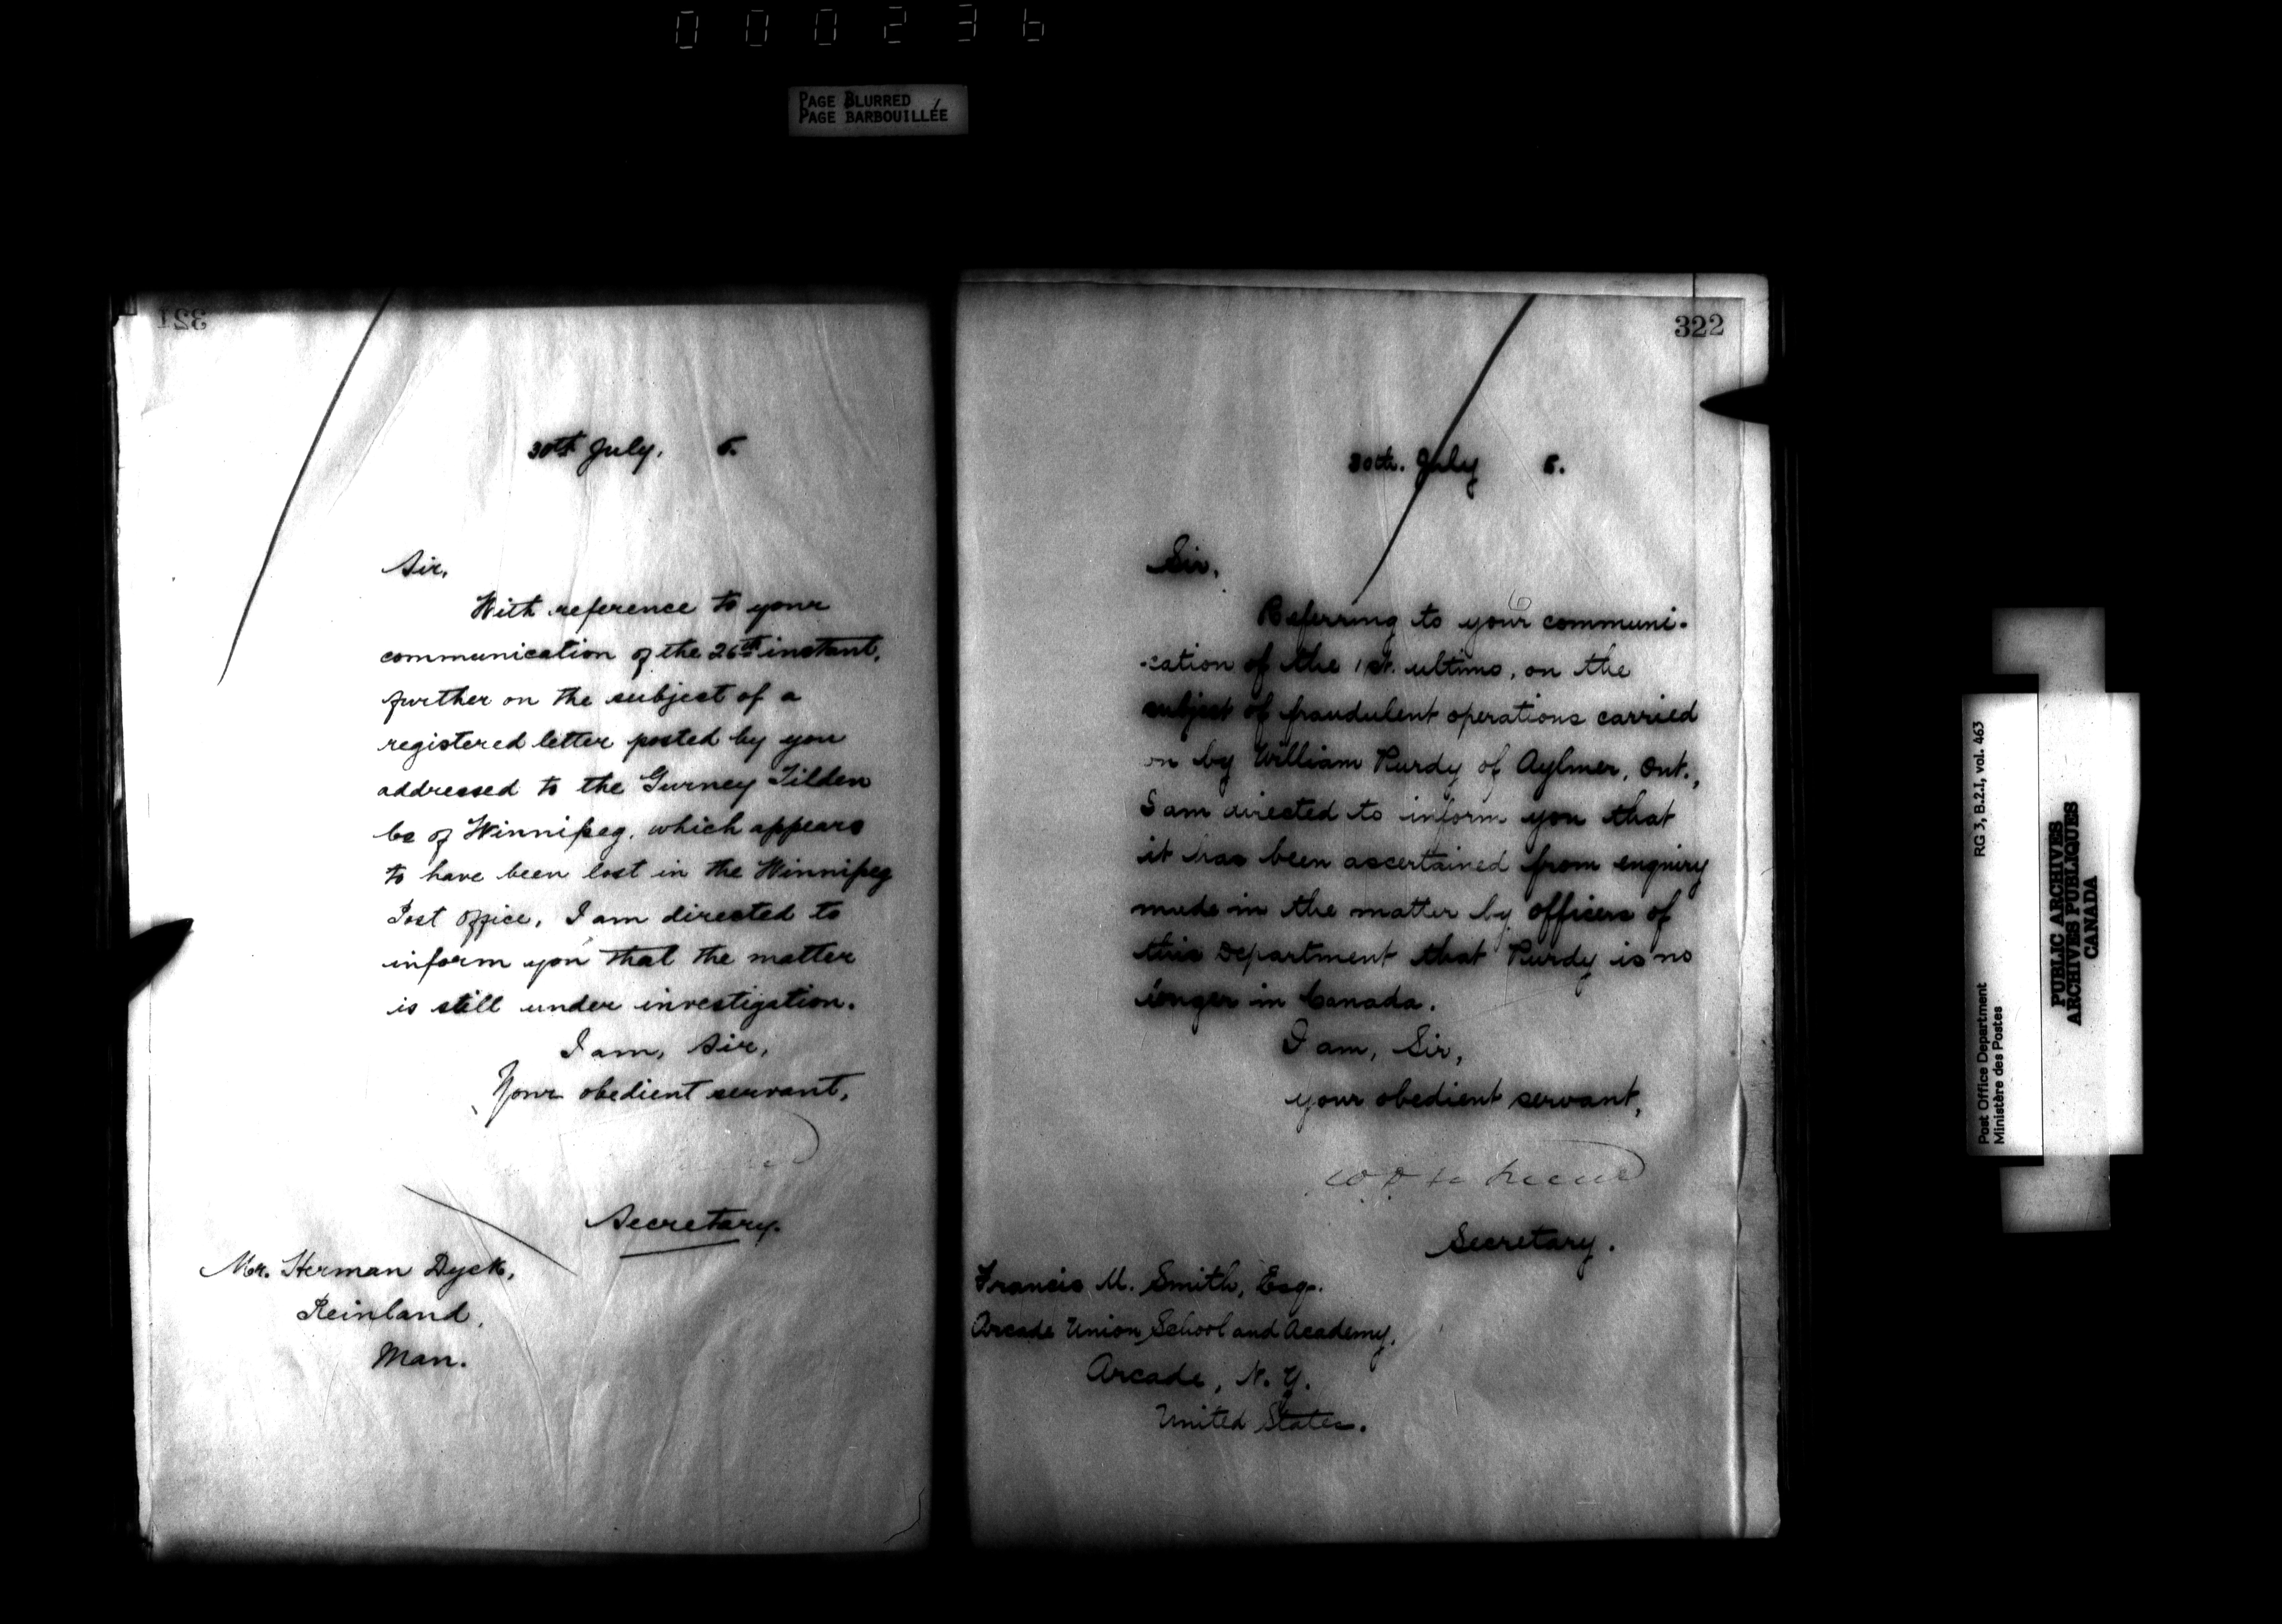 000236
PAGE BLURRED
PAGE BARBOUILLÉE
321
30th July, 5.
Sir,
With reference to your
communication of the 26th instant,
further on the subject of a
registered letter posted by you
addressed to the Gurney Tilden
Co of Winnipeg, which appears
to have been lost in the Winnipeg
Post Office, I am directed to
inform you that the matter
is still under investigation.
I am, Sir,
Your obedient servant,
Secretary.
Mr. Herman Dyck,
Reinland,
Man.
322
30th. July 5.
Sir,
Referring to your communi-
-cation of the 1st. ultimo, on the
subject of fraudulent operations carried
on by William Purdy of Aylmer, Ont.,
I am directed to inform you that
it has been ascertained from enquiry
made in the matter by officers of
this Department that Purdy is no
longer in Canada.
I am, Sir,
your obedient servant,
Secretary.
Francis M. Smith, Esq.
Arcade Union School and Academy,
Arcade, N.Y.
United States.
Post Office Department RG 3, B.2.I, vol. 463
Ministère des Postes
PUBLIC ARCHIVES
ARCHIVES PUBLIQUES
CANADA